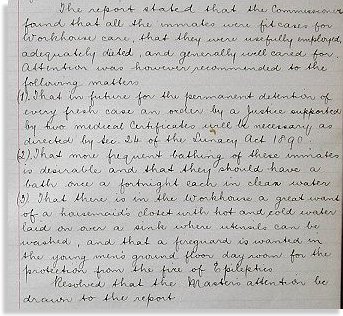 The report stated that the Commissioner
found that all the inmates were fit cases for
Workhouse care, that they were usefully employed,
adequately dieted, and generally well cared for.
Attention was however recommended to the
following matters
(1). That in future for the permanent detention of
every fresh case an order by a Justice supported
by two medical Certificates will be necessary, as
directed by Sec. 24 of the Lunacy Act 1890.
(2). That more frequent bathing of these inmates
is desirable and that they should have a
bath once a fortnight each in clean water
(3). That there is in the Workhouse a great want
of a housemaids closet with hot and cold water
laid on over a sink where utensils can be
washed, and that a fireguard is wanted in
the young mens ground floor day room for the
protection from the fire of Epileptics
Resolved that the Masters attention be
drawn to the report